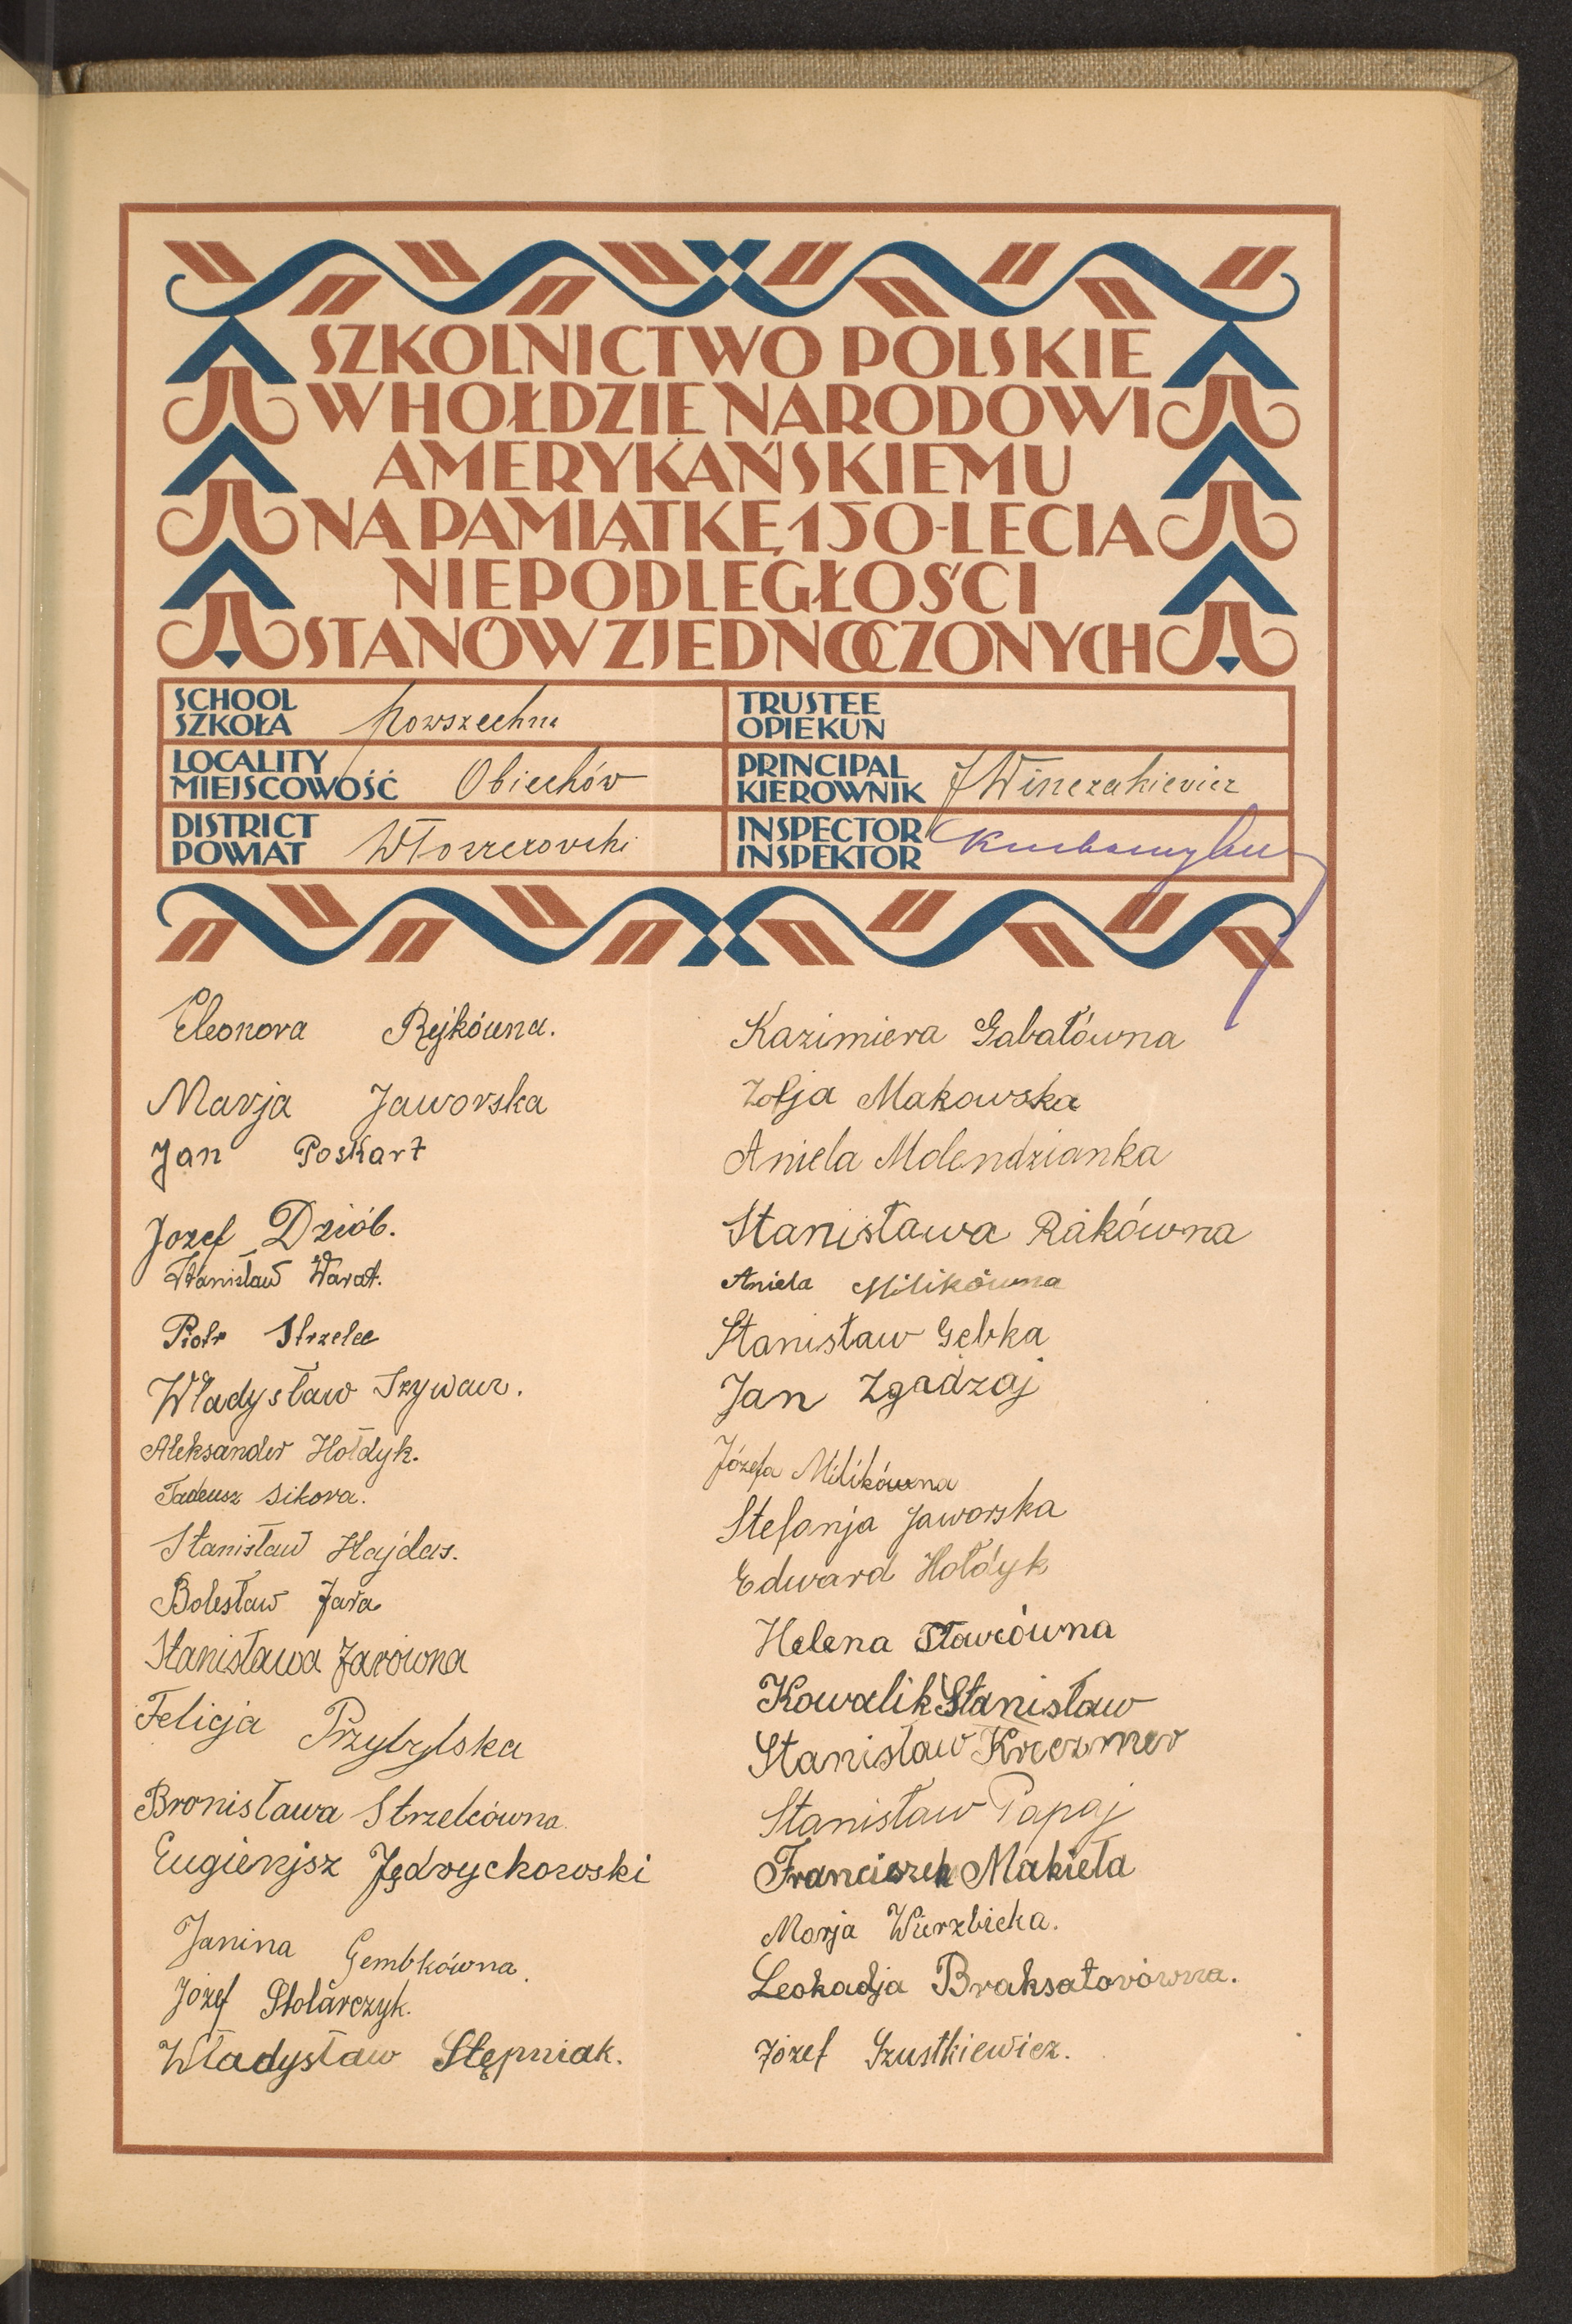 SZKOLNICTWO POLSKIE
W HOŁDZIE NARODOWI
AMERYKAŃSKIEMU
NA PAMIĄTKĘ 150-LECIA
NIEPODLEGŁOŚCI
STANÓW ZJEDNOCZONYCH
SCHOOL
SZKOŁA powszechna
TRUSTEE
OPIEKUN
LOCALITY
MIEJSCOWOŚĆ Obiechów
PRINCIPAL
KIEROWNIK J Winczakiewicz
DISTRICT
POWIAT Włoszczowski
INSPECTOR
INSPEKTOR
Eleonora Rejkówna.
Marja Jaworska
Jan Poskart
Jozef Dziób.
Stanisław Warat.
Piotr Strzelec
Władysław Szywacz.
Aleksander Hołdyk.
Tadeusz Sikora.
Stanisław Hajdas.
Bolesław Jara
Stanisława Jarówna
Felicja Przybylska
Bronisława Strzelcówna.
Eugienjsz Jędrychowski
Janina Gembkówna.
Józef Stolarczyk.
Władysław Stępniak.
Kazimiera Gabałówna
Zofja Makowska
Aniela Molendzianka
Stanisława Rakówna
Aniela Milikówna
Stanisław Gębka
Jan Zgadzaj
Józefa Milikówna
Stefanja Jaworska
Edward Hołdyk
Helena Stawcówna
Kowalik Stanisław
Stanisław Kreczmer
Stanisław Papaj
Franciszek Makieła
Marja Wierzbicka.
Leokadja Braksatorówna.
Józef Szustkiewicz.